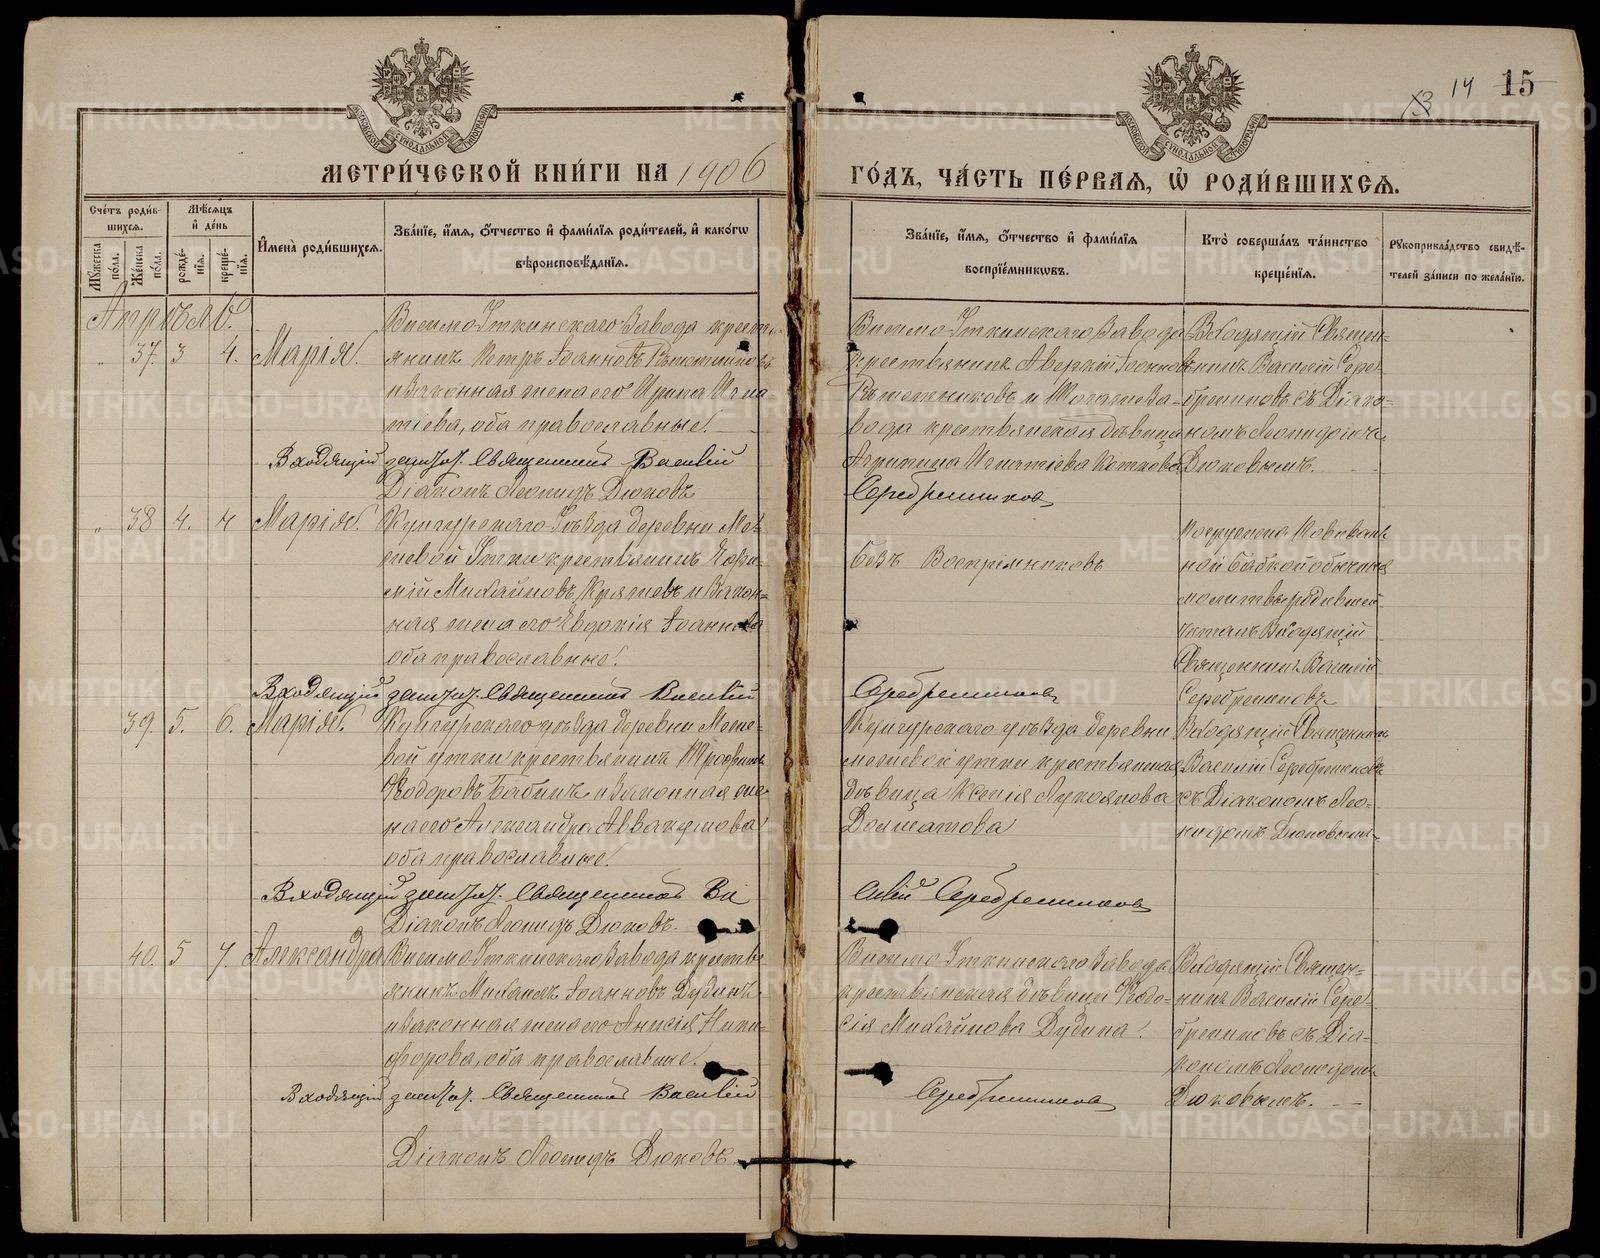 13 14 15
МЕТРИ́ЧЕСКОЙ КНИ́ГИ НА 1906
ГО́ДЪ, ЧА́СТЬ ПЕ́РВАЯ, Ѡ҆ РОДИ́ВШИХСЯ.
Сче́тъ роди́в-
шихся.
Мꙋ́жеска по́ла.
Же́нска по́ла.
Мѣ́сяцъ и҆ де́нь
рожде́-
нїя.
креще́-
нїя.
И҆мена̀ роди́вшихся.
Зва́нїе, и҆́мя, ѻ҆́тчество и҆ фами́лїя роди́телей, и҆ како́гѡ
вѣроисповѣ́данїя.
Зва́нїе, и҆́мя, ѻ҆́тчество и҆ фами́лїя
воспрїе́мникѡвъ.
Кто̀ соверша́лъ та́инство
креще́нїя.
Рꙋкоприкла́дство свидѣ́-
телей за́писи по жела́нїю.
Апрѣль.
„ 37. 3 4. Марія.
Висимо-Уткинскаго Завода кресть-
янинъ Петръ Іоанновъ Рѣшетниковъ
и законная жена его Ирина Игна-
тіева, оба православные.
Висимо-Уткинскаго Завода
крестьянинъ Аверкій Іоанновъ
Рѣшетниковъ и За-
вода крестьянская дѣвица
Агрипина Игнатіева
Входящій Священ-
никъ Василій Сереб-
рениковъ съ Діако-
номъ Леонидомъ
Дюковымъ.
Входящій Священникъ Василій Серебренниковъ
Діаконъ Леонидъ Дюковъ
„ 38 4. 4 Марія.
Кунгурскаго Уѣзда деревни Мо-
левой Утки крестьянинъ Ефи-
мій Михайловъ и Закон-
ная жена его Евдокія Іоаннова
оба православные.
Безъ Воспріемниковъ
Погружена Повиваль-
ной бабкой обычныя
молитвы родившей
читалъ Входящій
Священникъ Василій
Серебрениковъ
Входящій Священникъ Василій Серебренниковъ
39. 5. 6. Марія.
Кунгурскаго уѣзда деревни
утки крестьянинъ Трофимъ
Ѳеодоровъ Бабинъ и законная же-
на его Александра Аввакумова
оба православные.
Кунгурскаго уѣзда деревни
утки крестьянская
дѣвица Ксенія Лукоянова
Долматова
Входящій Священникъ
Василій Серебрениковъ
съ Діакономъ Лео-
нидомъ Дюковымъ.
Входящій Священникъ Ва
силій Серебренниковъ
Діаконъ Леонидъ Дюковъ.
40. 5 7. Александра
Висимо Уткинскаго Завода кресть-
янинъ Михаилъ Іоанновъ Дудинъ
и законная жена его Анисія Ники-
форова, оба православные.
Висимо Уткинскаго Завода
крестьянская дѣвица Ѳеодо-
сія Михайлова Дудина.
Входящій Священ-
никъ Василій Сереб-
рениковъ съ Діа-
кономъ Леонидомъ
Дюковымъ.
Входящій Священникъ Василій Серебренниковъ
Діаконъ Леонидъ Дюковъ
METRIKI.GASO-URAL.RU